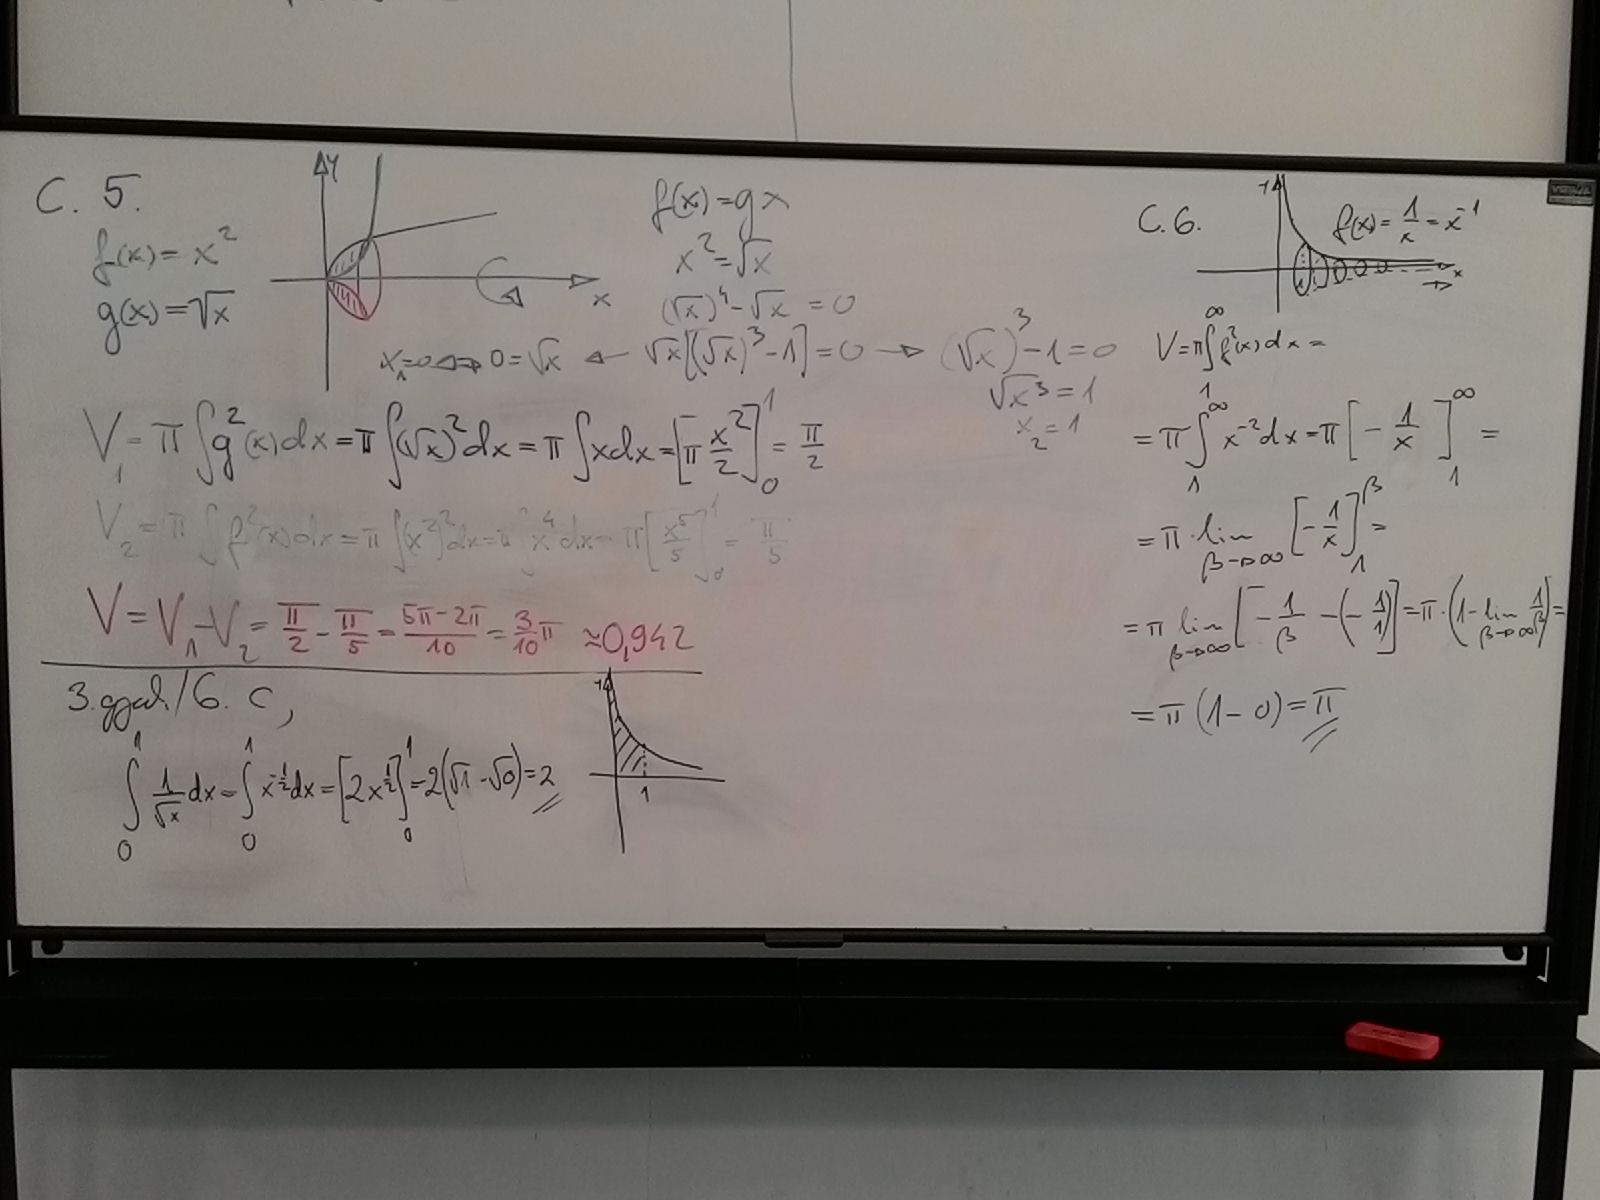 C. 5.
f(x) = x²
g(x) = √x
y
x
f(x) = g x
x² = √x
(√x)⁴ - √x = 0
x₁=0 ⇔ 0 = √x ← √x[(√x)³ - 1] = 0 → (√x)³ - 1 = 0
√x³ = 1
x₂ = 1
V₁ = π ∫g²(x)dx = π ∫(√x)²dx = π ∫xdx = [π x²/2]₀¹ = π/2
V₂ = π ∫f²(x)dx = π ∫(x²)²dx = π ∫x⁴dx = π[x⁵/5]₀¹ = π/5
V = V₁ - V₂ = π/2 - π/5 = (5π - 2π)/10 = 3/10 π ≈ 0,942
3. gyak./6. c,
∫₀¹ 1/√x dx = ∫₀¹ x^(-1/2) dx = [2x^(1/2)]₀¹ = 2(√1 - √0) = 2
1
C. 6.
f(x) = 1/x = x⁻¹
x
V = π∫₁^∞ f²(x)dx =
= π ∫₁^∞ x⁻²dx = π [- 1/x]₁^∞ =
= π · lim β→∞ [- 1/x]₁^β =
= π lim β→∞ [- 1/β - (- 1/1)] = π · (1 - lim β→∞ 1/β) =
= π (1 - 0) = π